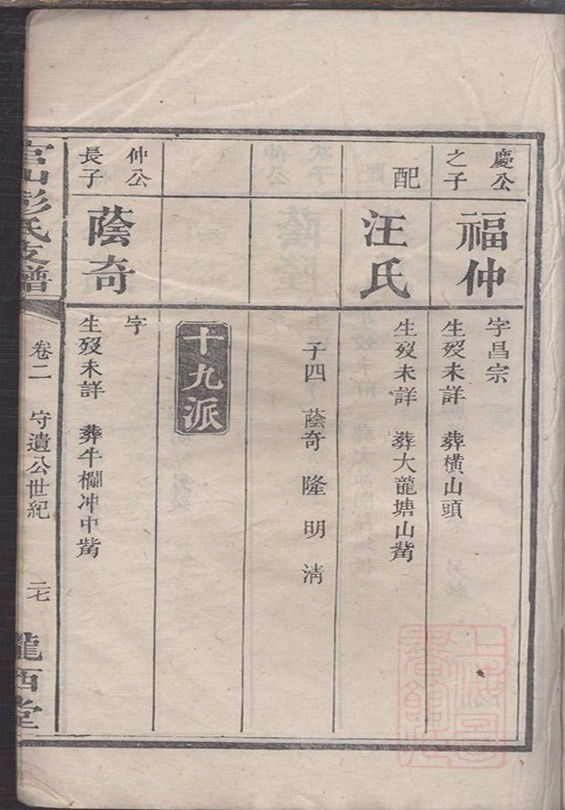 慶公之子
福仲
字昌宗
生歿未詳 葬橫山頭
配
汪氏
生歿未詳 葬大龍塘山觜
子四 蔭奇 隆 明 淸
十九派
仲公長子
蔭奇
字
生歿未詳 葬牛欄冲中觜
彭氏支譜
卷二 守遺公世紀 二七
隴西堂